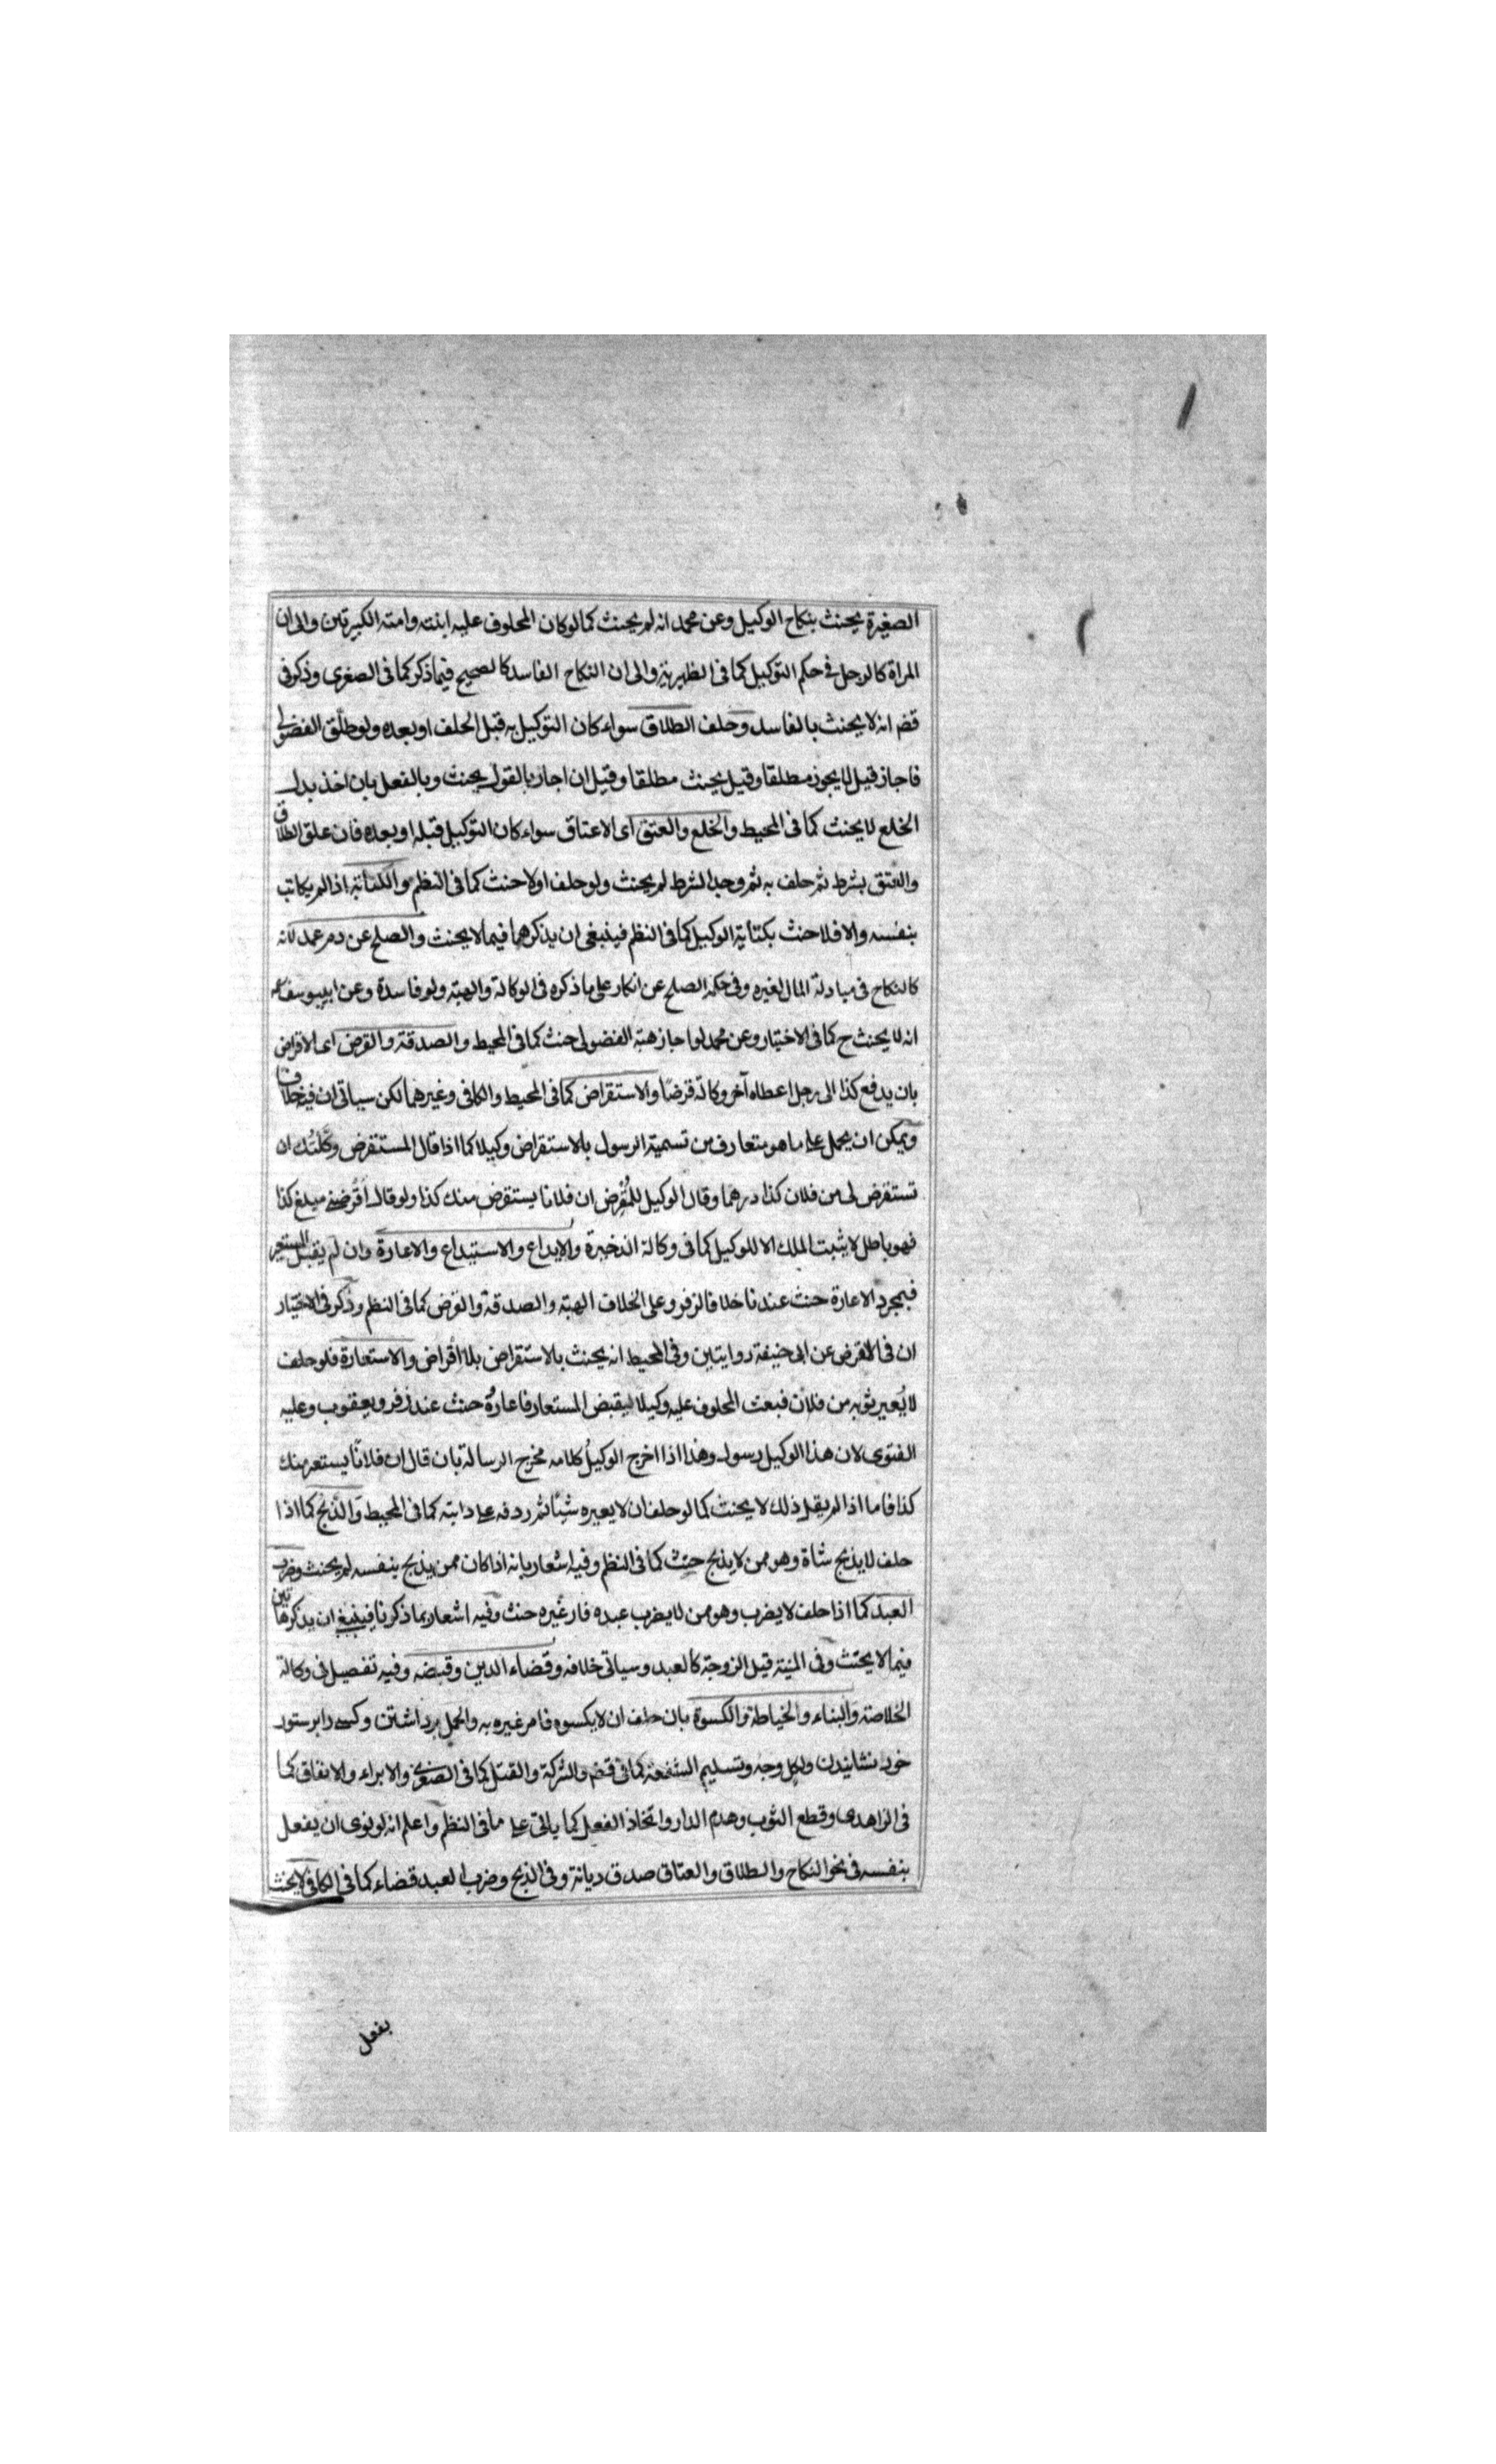 الصغيرة يحنث بنكاح الوكيل وعن محمد انه لم يحنث كما لو كان المحلوف عليه ابنته وامته الكبيرتين والى ان
المراة كالرجل في حكم التوكيل كما في الظهيرية والى ان النكاح الفاسد كالصحيح فيما ذكر كما في الصغرى وذكر في
قضـ انه لا يحنث بالفاسد وحلف الطلاق سواء كان التوكيل به قبل الحلف او بعده ولو طلّق الفضولى
فاجاز قيل لا يجوز مطلقا وقيل يحنث مطلقا وقيل ان اجاز بالقول يحنث وبالفعل بان اخذ بدل
الخلع لا يحنث كما في المحيط والخلع والعتق اى الاعتاق سواء كان التوكيل قبله او بعده فان علق الطلاق
والعتق بشرط ثم حلف به ثم وجد الشرط لم يحنث ولو حلف اولا حنث كما في النظم والكتابة اذا لم يكاتب
بنفسه والا فلا حنث بكتابة الوكيل كما في النظم فينبغى ان يذكرهما فيما لا يحنث والصلح عن دم عمد لانه
كالنكاح في مبادلة المال لغيره وفي حكمه الصلح عن انكار على ما ذكره في الوكالة والهبة ولو فاسدة وعن ابييوسف
انه لا يحنث ح كما في الاختيار وعن محمد لو اجاز هبة الفضولى حنث كما في المحيط والصدقة والقرض اى الاقراض
بان يدفع كذا الى رجل اعطاه آخر وكالة قرضًا والاستقراض كما في المحيط والكافى وغيرهما لكن سياتى ان فيه خلاف
ويمكن ان يحمل على ما هو متعارف من تسمية الرسول بالاستقراض وكيلا كما اذا قال المستقرض وكّلتُك ان
تستقرض لى من فلان كذا درهما وقال الوكيل للمُقرض ان فلانا يستقرض منك كذا ولو قال اَقرضنى مبلغ كذا
فهو باطل لا يثبت الملك الا للوكيل كما في وكالة الذخيرة والايداع والاستيداع والاعارة وان لم يقبل المستعير
فبمجرد الاعارة حنث عندنا خلافا لزفر وعلى الخلاف الهبة والصدقة والقرض كما في النظم وذكر في الاختيار
ان في القرض عن ابى حنيفة روايتين وفي المحيط انه يحنث بالاستقراض بلا اقراض والاستعارة فلو حلف
لا يُعير ثوبه من فلان فبعث المحلوف عليه وكيلا ليقبض المستعار فاعاره حنث عند زفر ويعقوب وعليه
الفتوى لان هذا الوكيل رسول وهذا اذا اخرج الوكيلُ كلامه مخرج الرسالة بان قال ان فلانًا يستعير منك
كذا فاما اذا لم يقل ذلك لا يحنث كما لو حلف ان لا يعيره شيئًا ثم ردفه على دابته كما في المحيط والذبح كما اذا
حلف لا يذبح شاة وهو ممن لا يذبح حنث كما في النظم وفيه اشعار بانه اذا كان ممن يذبح بنفسه لم يحنث وضرب
العبد كما اذا حلف لا يضرب وهو ممن لا يضرب عبده فامر غيره حنث وفيه اشعار بما ذكرنا فينبغى ان يذكرها تين
فيما لا يحنث وفى المنية قيل الزوجة كالعبد وسياتى خلافه وقضاء الدين وقبضه وفيه تفصيل في وكالة
الخلاصة والبناء والخياطة والكسوة بان حلف ان لا يكسوه فامر غيره به والحمل برداشتن وكسى را بر ستور
خود نشانيدن ولكل وجه وتسليم الشفعة كما في قضـ والشركة والقتل كما في الصغرى والابراء والانفاق كما
في الزاهدى وقطع الثوب وهدم الدار واتخاذ الفعل كما ياتى على ما في النظم واعلم انه لو نوى ان يفعل
بنفسه في نحو النكاح والطلاق والعتاق صدق ديانة وفي الذبح وضرب العبد قضاء كما في الكافى لا يحنث
بفعل